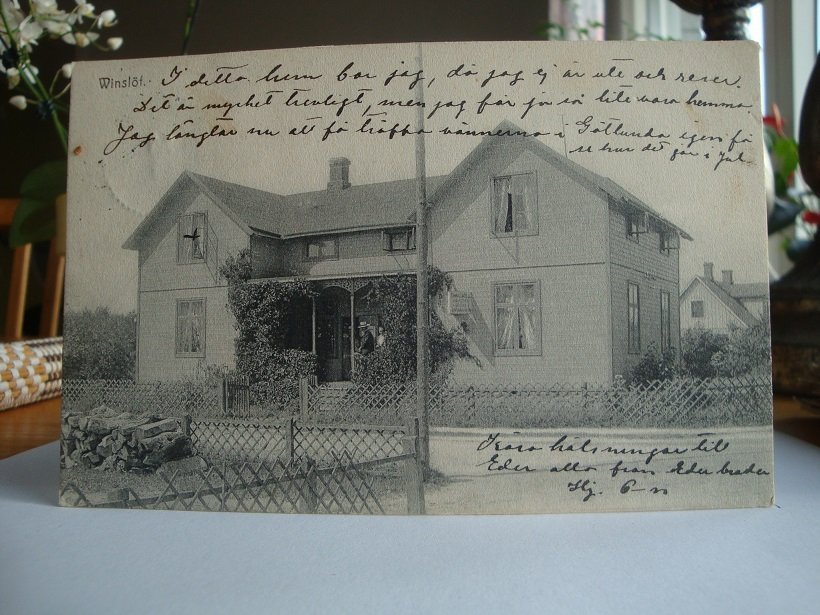 Winslöf.
I detta hem bor jag, då jag ej är ute och reser.
Det är mycket trevligt, men jag får ju så lite vara hemma
Jag längtar nu att få träffa vännerna i Götlunda igen få
se hur det går i Jul.
Kära hälsningar till
Eder alla från Eder broder
Hj.